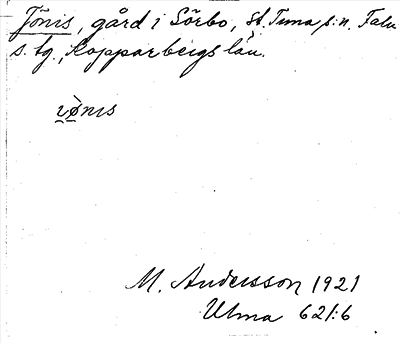 Jönis, gård i Sörbo, St. Tuna s:n. Falu
s. tg., Kopparbergs län.
M. Andersson 1921
Ulma 621:6